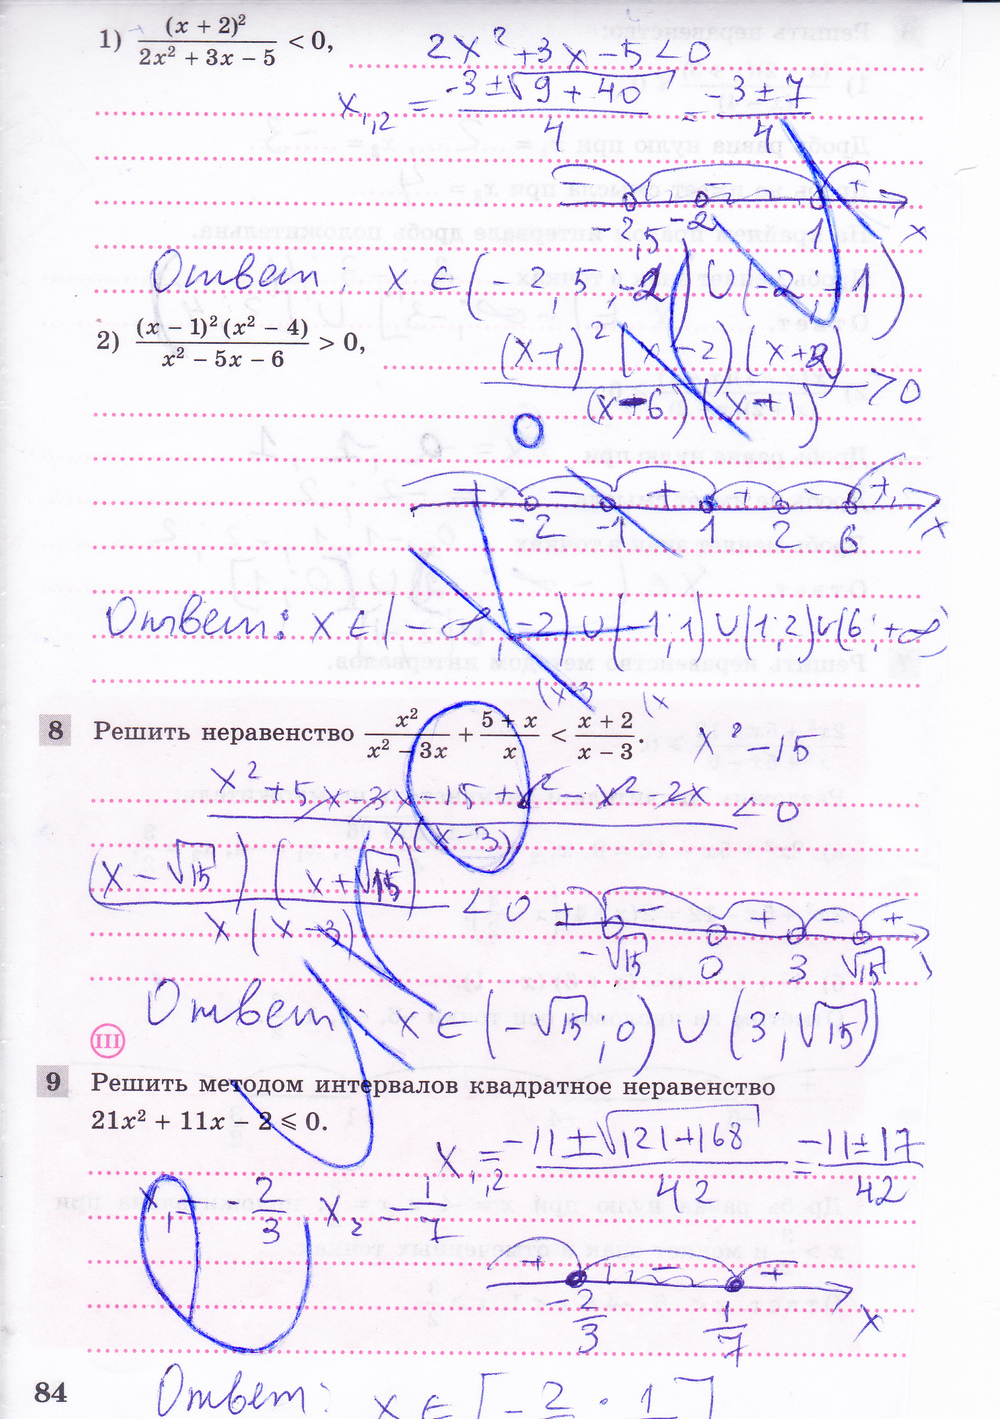 1) (x + 2)² / (2x² + 3x − 5) < 0,
2x² + 3x − 5 < 0
x₁,₂ = (−3 ± √(9 + 40)) / 4 = (−3 ± 7) / 4
−2,5 −2 1 x
Ответ: x ∈ (−2,5; −2) ∪ (−2; 1)
2) (x − 1)² (x² − 4) / (x² − 5x − 6) > 0,
(x−1)² (x−2) (x+2) / (x−6) (x+1) > 0
+ − + + − +
−2 −1 1 2 6 x
Ответ: x ∈ (−∞; −2) ∪ (−1; 1) ∪ (1; 2) ∪ (6; +∞)
8 Решить неравенство x² / (x² − 3x) + (5 + x) / x < (x + 2) / (x − 3).
x² − 15
x² + 5x − 3x − 15 + x² − x² − 2x / x(x−3) < 0
(x − √15) (x + √15) / x (x − 3) < 0
+ − + − +
−√15 0 3 √15
Ответ: x ∈ (−√15; 0) ∪ (3; √15)
III
9 Решить методом интервалов квадратное неравенство
21x² + 11x − 2 ⩽ 0.
x₁,₂ = (−11 ± √(121 + 168)) / 42 = (−11 ± 17) / 42
x₁ = −2/3 x₂ = 1/7
+ − +
−2/3 1/7 x
84
Ответ: x ∈ [−2/3; 1/7]